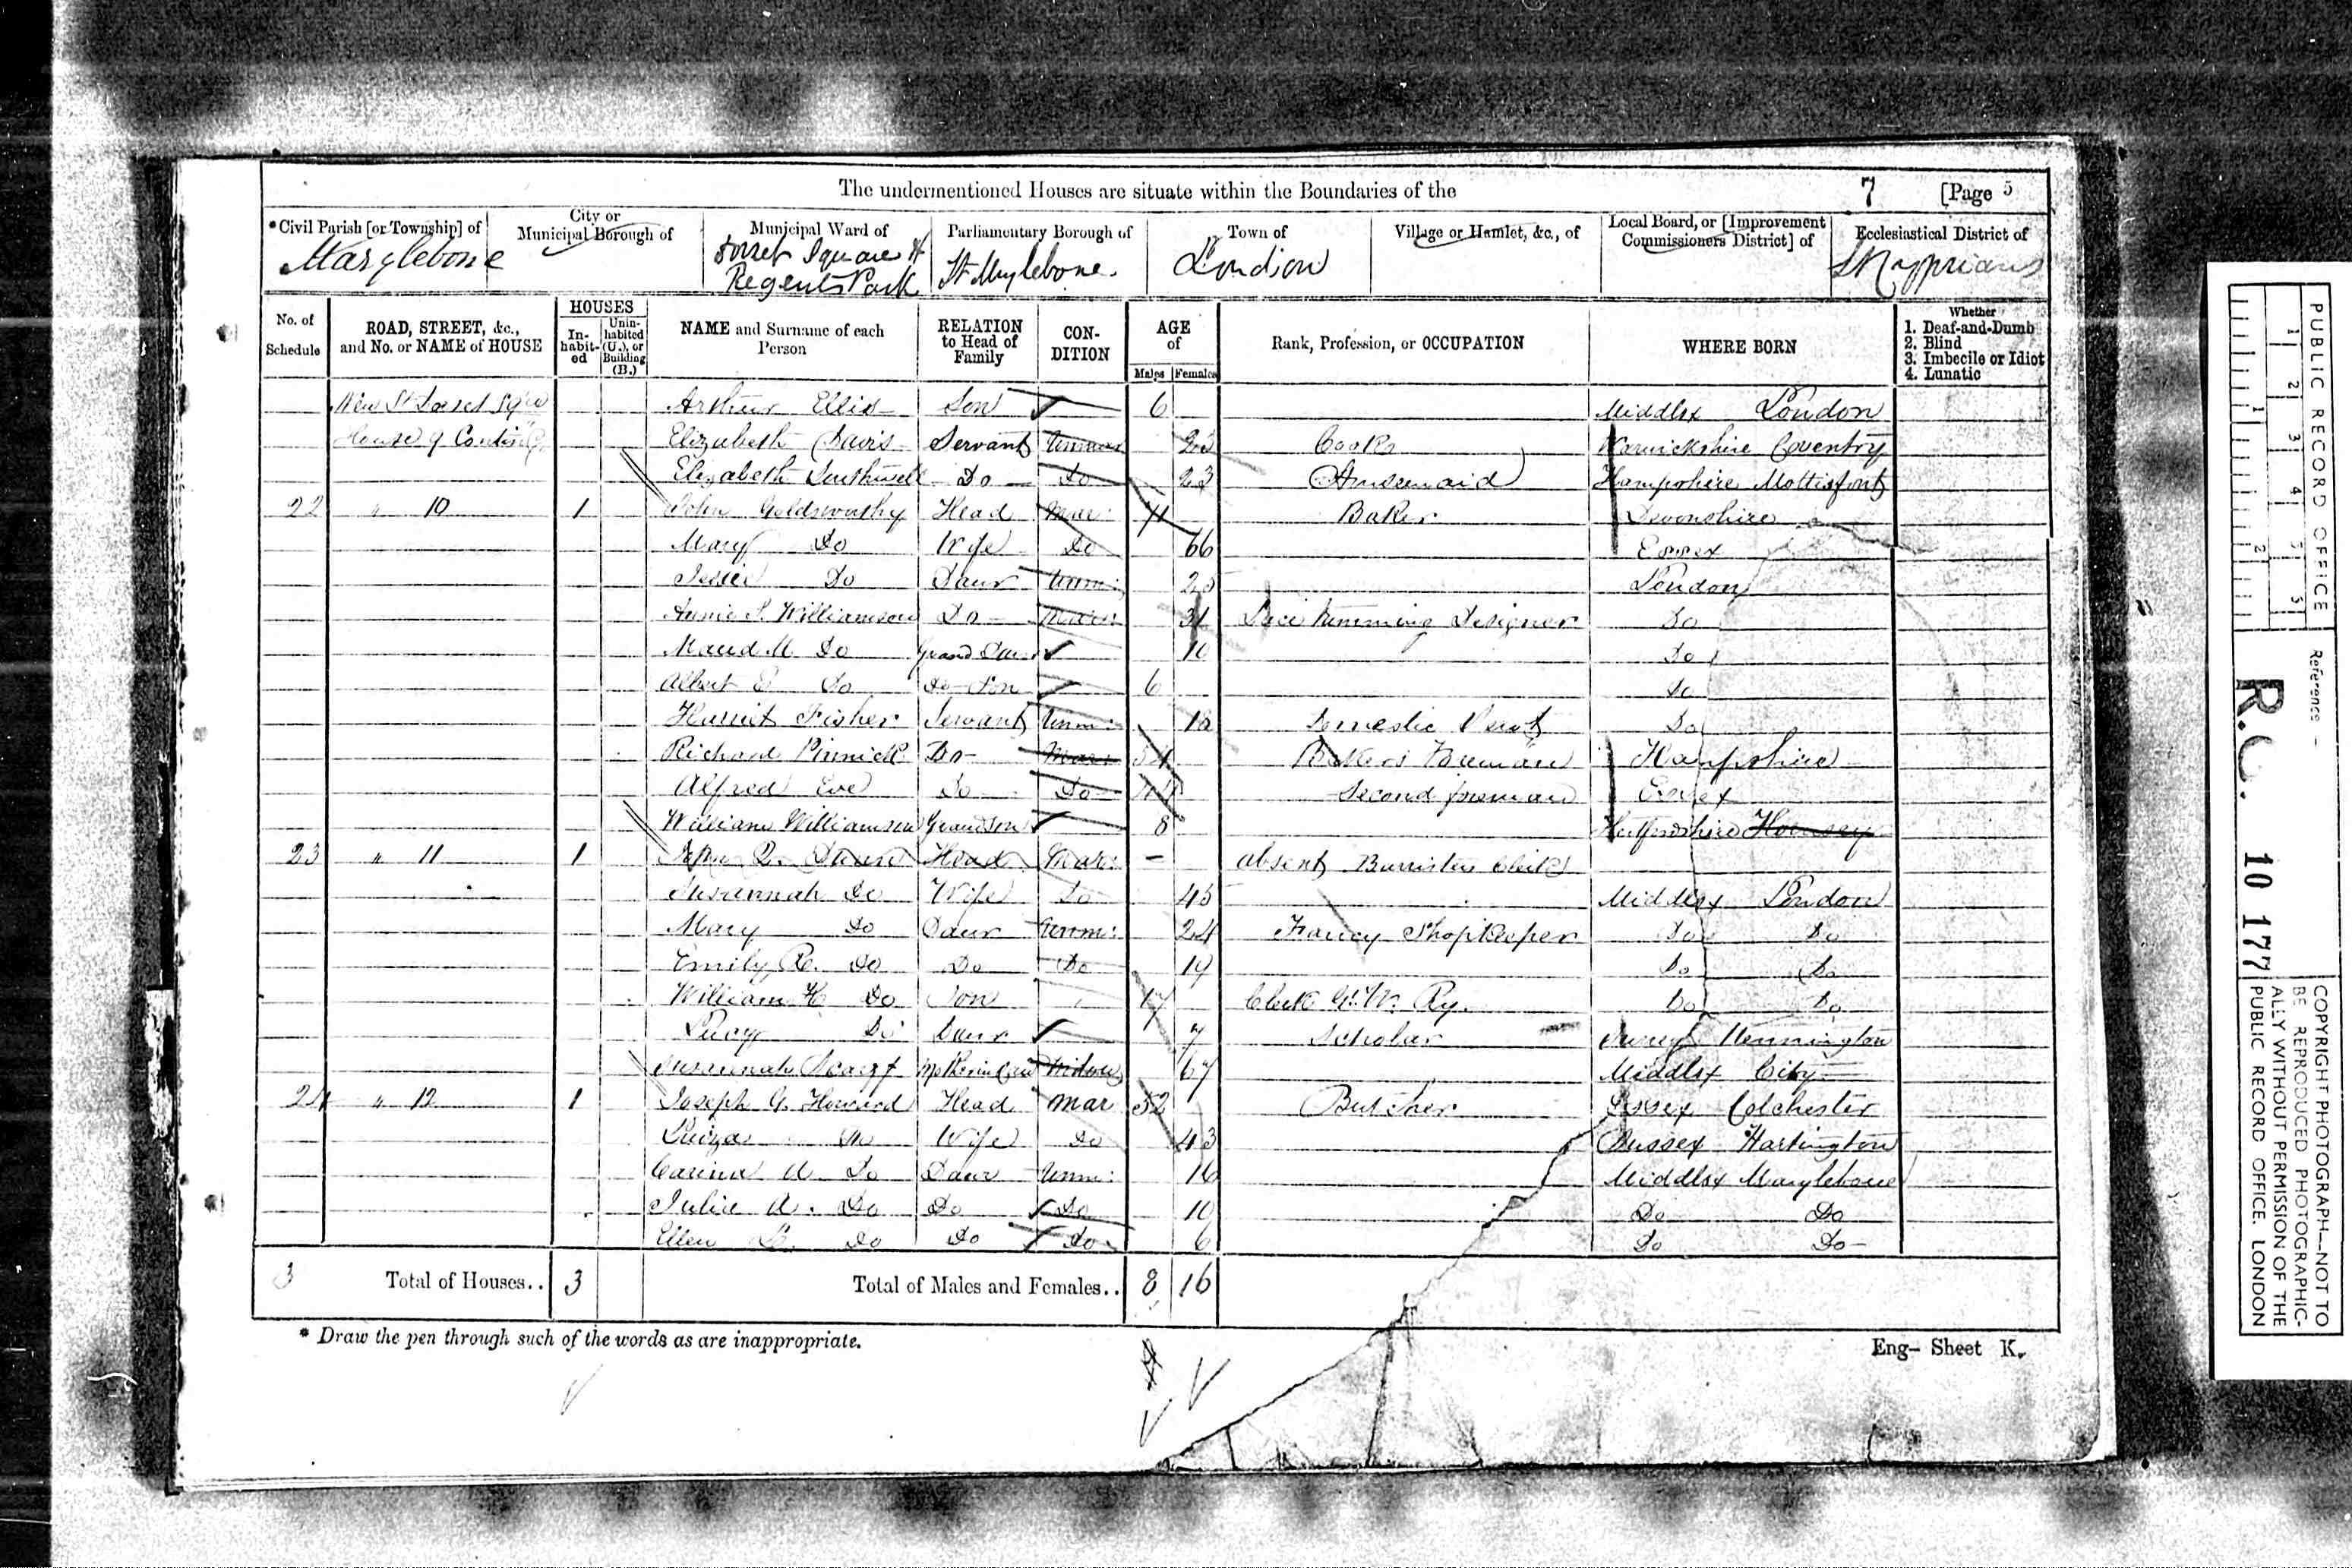 The undermentioned Houses are situate within the Boundaries of the 7 [Page 5
*Civil Parish [or Township] of
Marylebone
City or Municipal Borough of
Municipal Ward of
Dorset Square &
Regents Park
Parliamentary Borough of
St Marylebone.
Town of
London
Village or Hamlet, &c., of
Local Board, or [Improvement Commissioners District] of
Ecclesiastical District of
St Cyprians
No. of Schedule
ROAD, STREET, &c., and No. or NAME of HOUSE
HOUSES
In-habit-ed
Unin-habited (U.), or Building (B.)
NAME and Surname of each Person
RELATION to Head of Family
CON-DITION
AGE of
Males
Females
Rank, Profession, or OCCUPATION
WHERE BORN
Whether
1. Deaf-and-Dumb
2. Blind
3. Imbecile or Idiot
4. Lunatic
New St Dorset Sqre Arthur Ellis Son 6 Middlsx London
House 9 Elizabeth Davis Servant Unmar Cook Warwickshire Coventry
Elizabeth Southwell Do Do 23 Housemaid Hampshire Mottisfont
22 " 10 1 John Goldsworthy Head Mar: 71 Baker Devonshire
Mary Do Wife Do 66 Essex
Jessie Do Daur Unm: London
Annie S. Williamson Do Mar: 31 Lace trimming Designer Do
Maud M Do Grand Daur 10 Do
Albert E Do Do Son 6 Do
Harriet Fisher Servant Unm: 18 Domestic Servt Do
Richard Pinnick Do Mar: 54 Bakers Foreman Hampshire
Alfred Eve Do Do Second foreman Essex
William Williamson Grandson 8 Hertfordshire Hornsey
23 " 11 1 John Head Mar: – absent Barristers Clerk
Susannah Do Wife Do 45 Middlsx London
Mary Do Daur Unm: 24 Fancy Shopkeeper Do Do
Emily R. Do Do Do 19 Do Do
William H Do Son 17 Clerk G. W. Ry. Do Do
Lucy Do Daur 7 Scholar Surrey Kennington
Susannah Mother in law Widow 67 Middlsx City
24 " 12 1 Joseph G. Howard Head Mar 52 Butcher Essex Colchester
Luiza Do Wife Do 43 Sussex Hartington
Carina A Do Daur Unm: 16 Middlsx Marylebone
Julia A. Do Do Do 10 Do Do
Ellen Do Do Do 6 Do Do
3 Total of Houses.. 3 Total of Males and Females.. 8 16
* Draw the pen through such of the words as are inappropriate.
Eng- Sheet K.
PUBLIC RECORD OFFICE
1 2 3 4 5 6
1 2
Reference –
R.G. 10 177
COPYRIGHT PHOTOGRAPH—NOT TO
BE REPRODUCED PHOTOGRAPHIC-
ALLY WITHOUT PERMISSION OF THE
PUBLIC RECORD OFFICE. LONDON